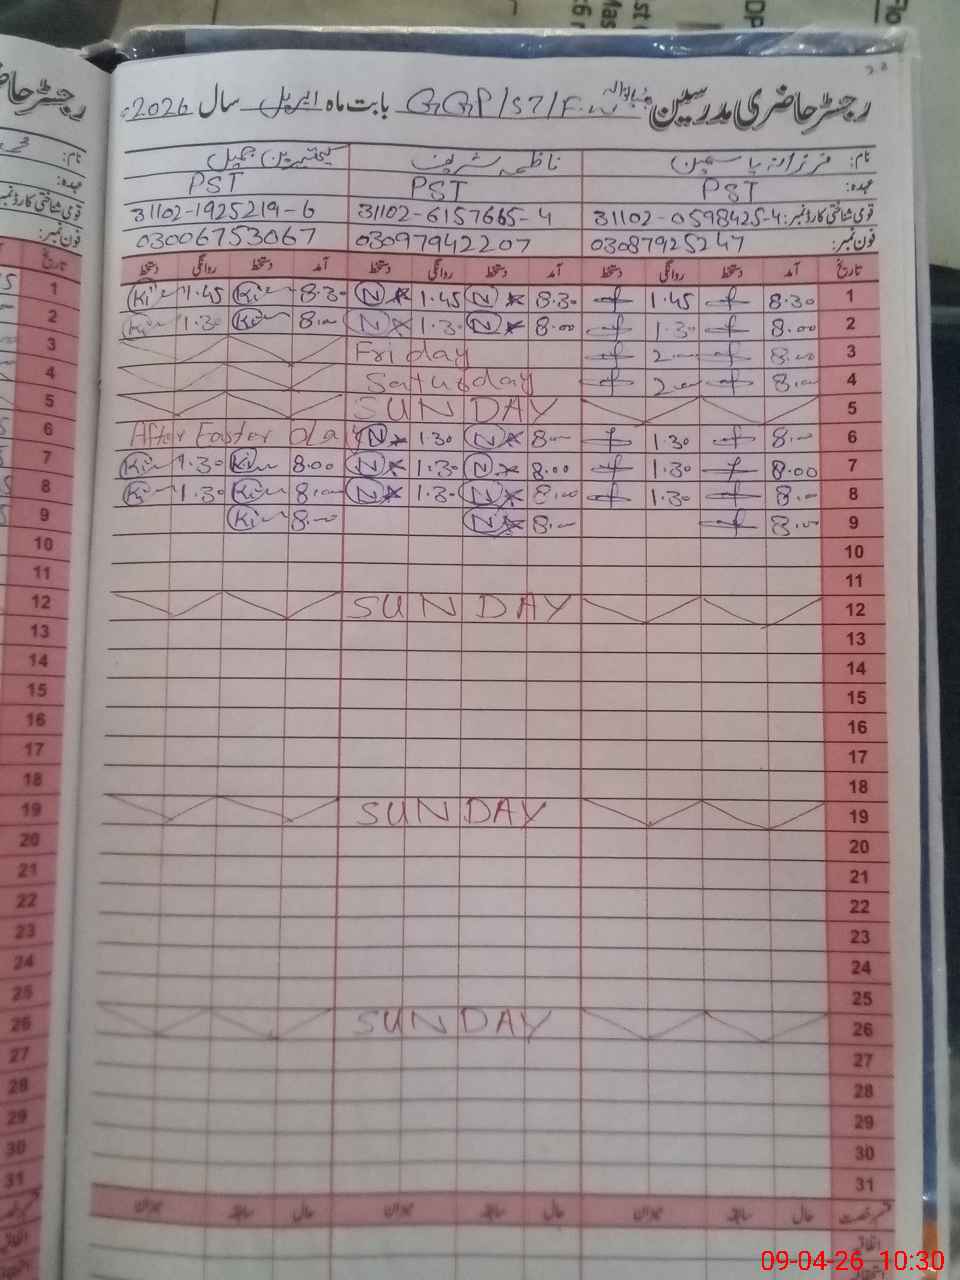 رجسٹر حاضری مدرسین GGP/S7/F.W بابت ماہ اپریل سال 2026ء
نام: فرزانہ یاسمین ناظمہ شریف جمیل
عہدہ: PST PST PST
قومی شناختی کارڈ نمبر: 31102-0598425-4 31102-6157665-4 31102-1925219-6
فون نمبر: 03087925247 03097942207 03006753067
تاریخ آمد دستخط روانگی دستخط آمد دستخط روانگی دستخط آمد دستخط روانگی دستخط تاریخ
1 8.30 1.45 8.30 N 1.45 N 8.30 Ki 1.45 Ki 1
2 8.00 1.30 8.00 N 1.30 N 8.00 Ki 1.30 Ki 2
3 8.00 2.00 Friday 3
4 8.00 2.00 Saturday 4
5 SUNDAY 5
6 8.00 1.30 8.00 N 1.30 N After Easter Day 6
7 8.00 1.30 8.00 N 1.30 N 8.00 Ki 1.30 Ki 7
8 8.00 1.30 8.00 N 1.30 N 8.00 Ki 1.30 Ki 8
9 8.00 8.00 N 8.00 Ki 9
10 10
11 11
12 SUNDAY 12
13 13
14 14
15 15
16 16
17 17
18 18
19 SUNDAY 19
20 20
21 21
22 22
23 23
24 24
25 25
26 SUNDAY 26
27 27
28 28
29 29
30 30
31 31
حال سابقہ میزان حال سابقہ میزان حال سابقہ میزان
اتفاقیہ
09-04-26 10:30